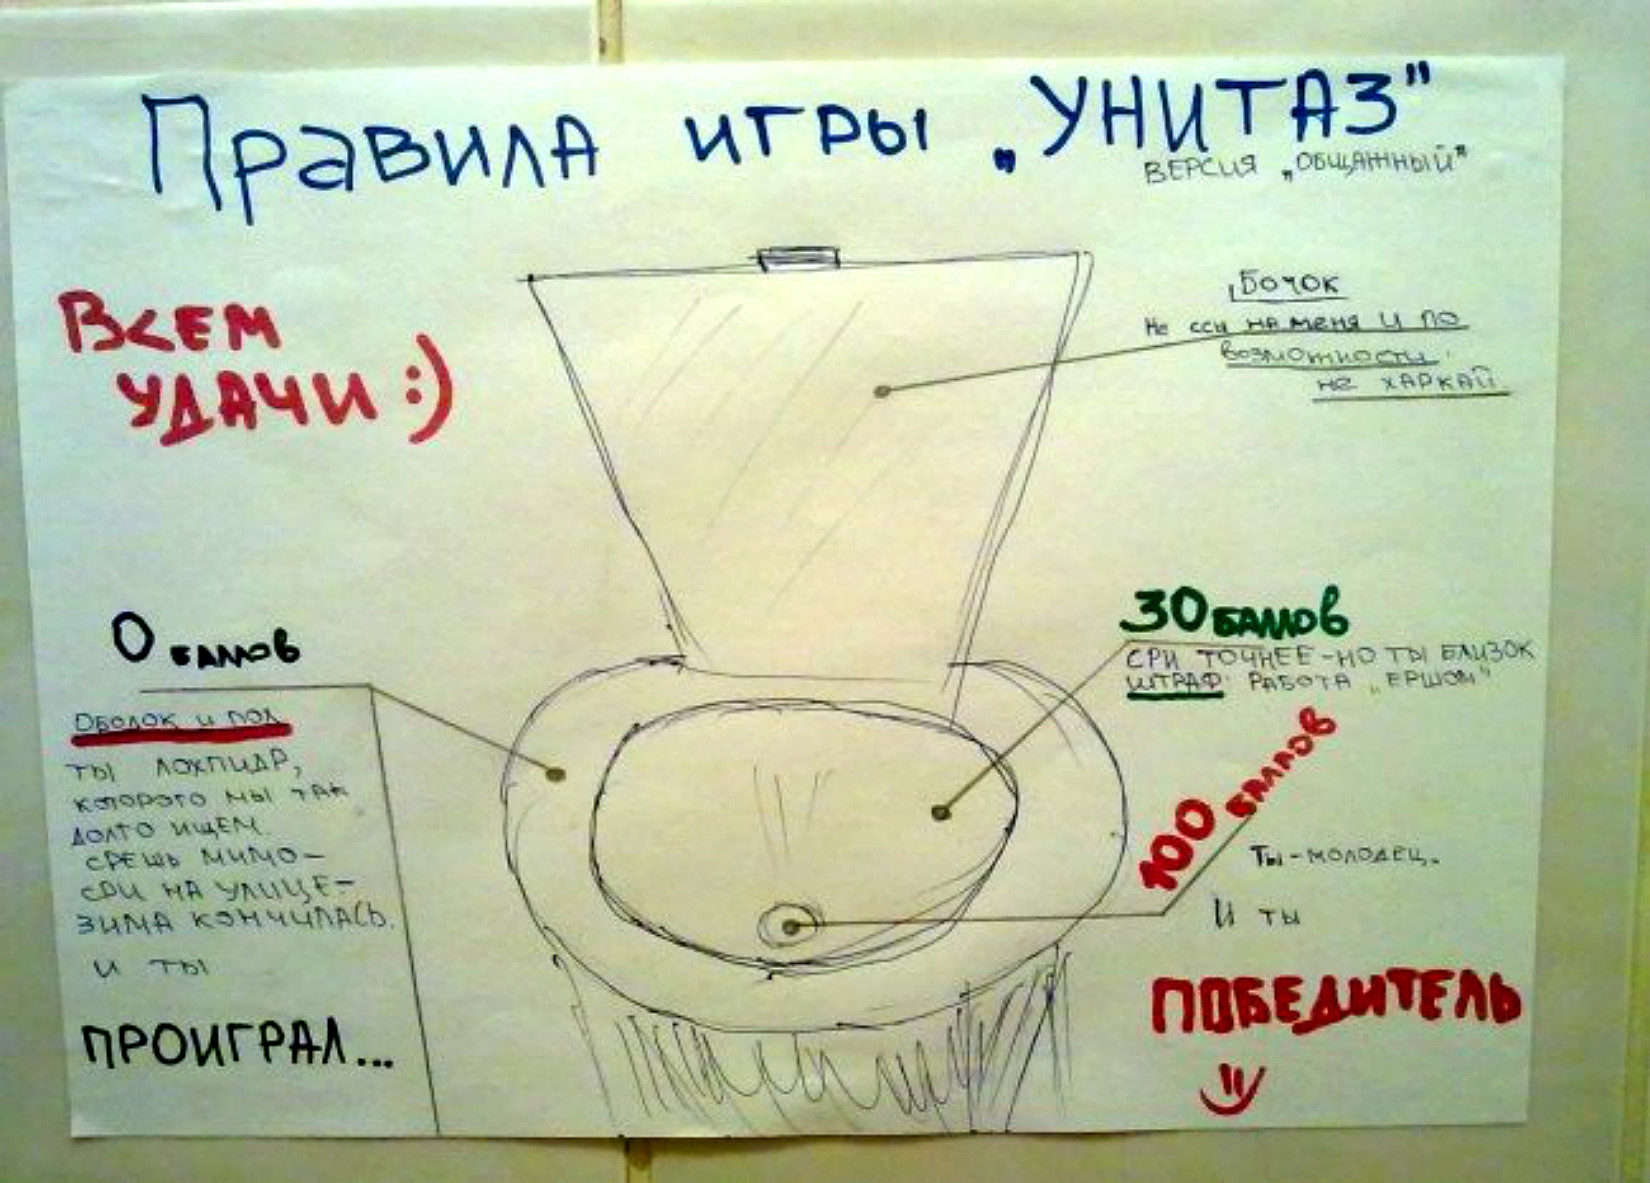 Правила игры „УНИТАЗ"
ВЕРСИЯ „ОБЩАЖНЫЙ"
ВСЕМ
УДАЧИ :)
Бочок
Не ссы на меня и по
возможности
не харкай
0 баллов
Ободок и пол
ты лохпидр,
которого мы так
долго ищем.
срешь мимо-
сри на улице-
зима кончилась.
и ты
ПРОИГРАЛ...
30 баллов
сри точнее - но ты близок
штраф: работа „ершом"
100 баллов
Ты - молодец.
И ты
ПОБЕДИТЕЛЬ